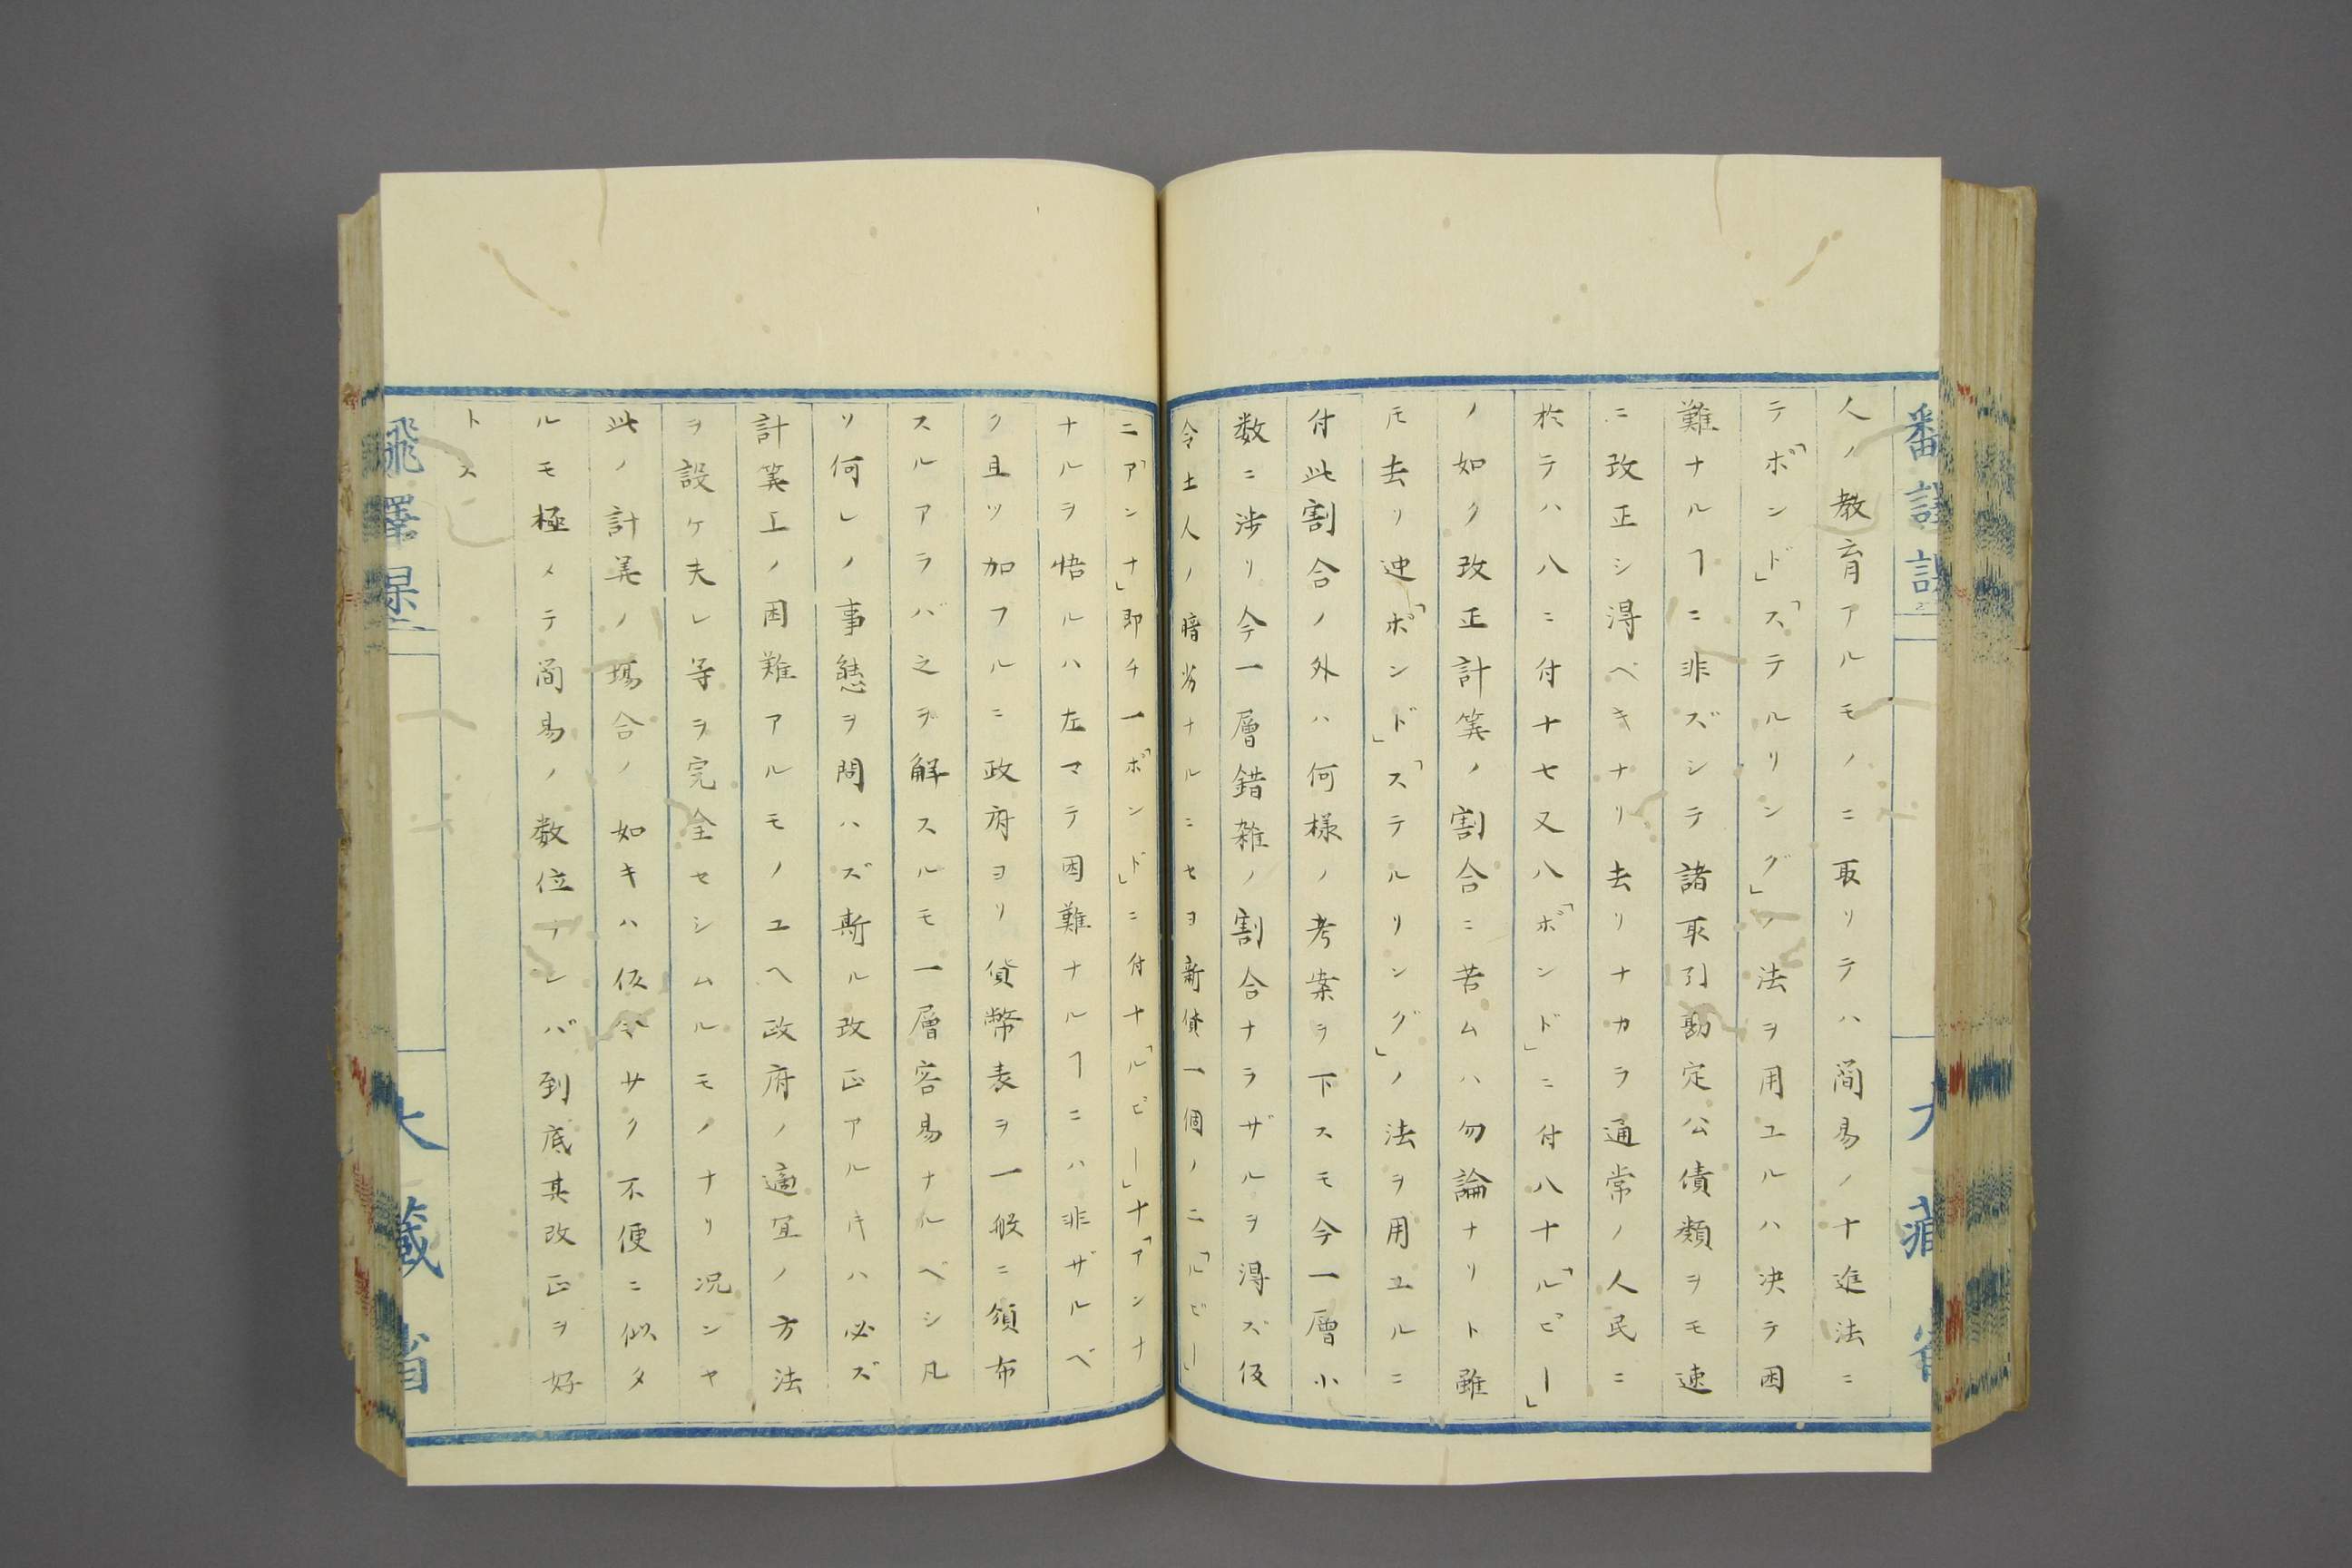 人ノ教育アルモノニ取リテハ簡易ノ十進法ニ
テ「ポンド」「ステルリング」ノ法ヲ用ユルハ決テ困
難ナルヿニ非ズシテ諸取引勘定公債類ヲモ速
ニ改正シ得ベキナリ去リナカラ通常ノ人民ニ
於テハ八ニ付十七又八「ポンド」ニ付八十「ルピー」
ノ如ク改正計筭ノ割合ニ苦ムハ勿論ナリト雖
𪜈去リ迚「ポンド」「ステルリング」ノ法ヲ用ユルニ
付此割合ノ外ハ何様ノ考案ヲ下スモ今一層小
数ニ渉リ今一層錯雑ノ割合ナラザルヲ得ズ仮
令土人ノ暗劣ナルニセヨ新貨一個ノ二「ルピー」
二「アンナ」即チ一「ポンド」ニ付十「ルピー」十「アンナ
ナルヲ悟ルハ左マテ困難ナルヿニハ非ザルベ
ク且ツ加フルニ政府ヨリ貨幣表ヲ一般ニ頒布
スルアラバ之ヲ解スルモ一層容易ナルベシ凡
ソ何レノ事態ヲ問ハズ斯ル改正アルキハ必ズ
計筭上ノ困難アルモノユヘ政府ノ適宜ノ方法
ヲ設ケ夫レ等ヲ完全セシムルモノナリ況ンヤ
此ノ計筭ノ場合ノ如キハ仮令サク不便ニ似タ
ルモ極メテ簡易ノ数位ナレバ到底其改正ヲ好
トス
大藏省